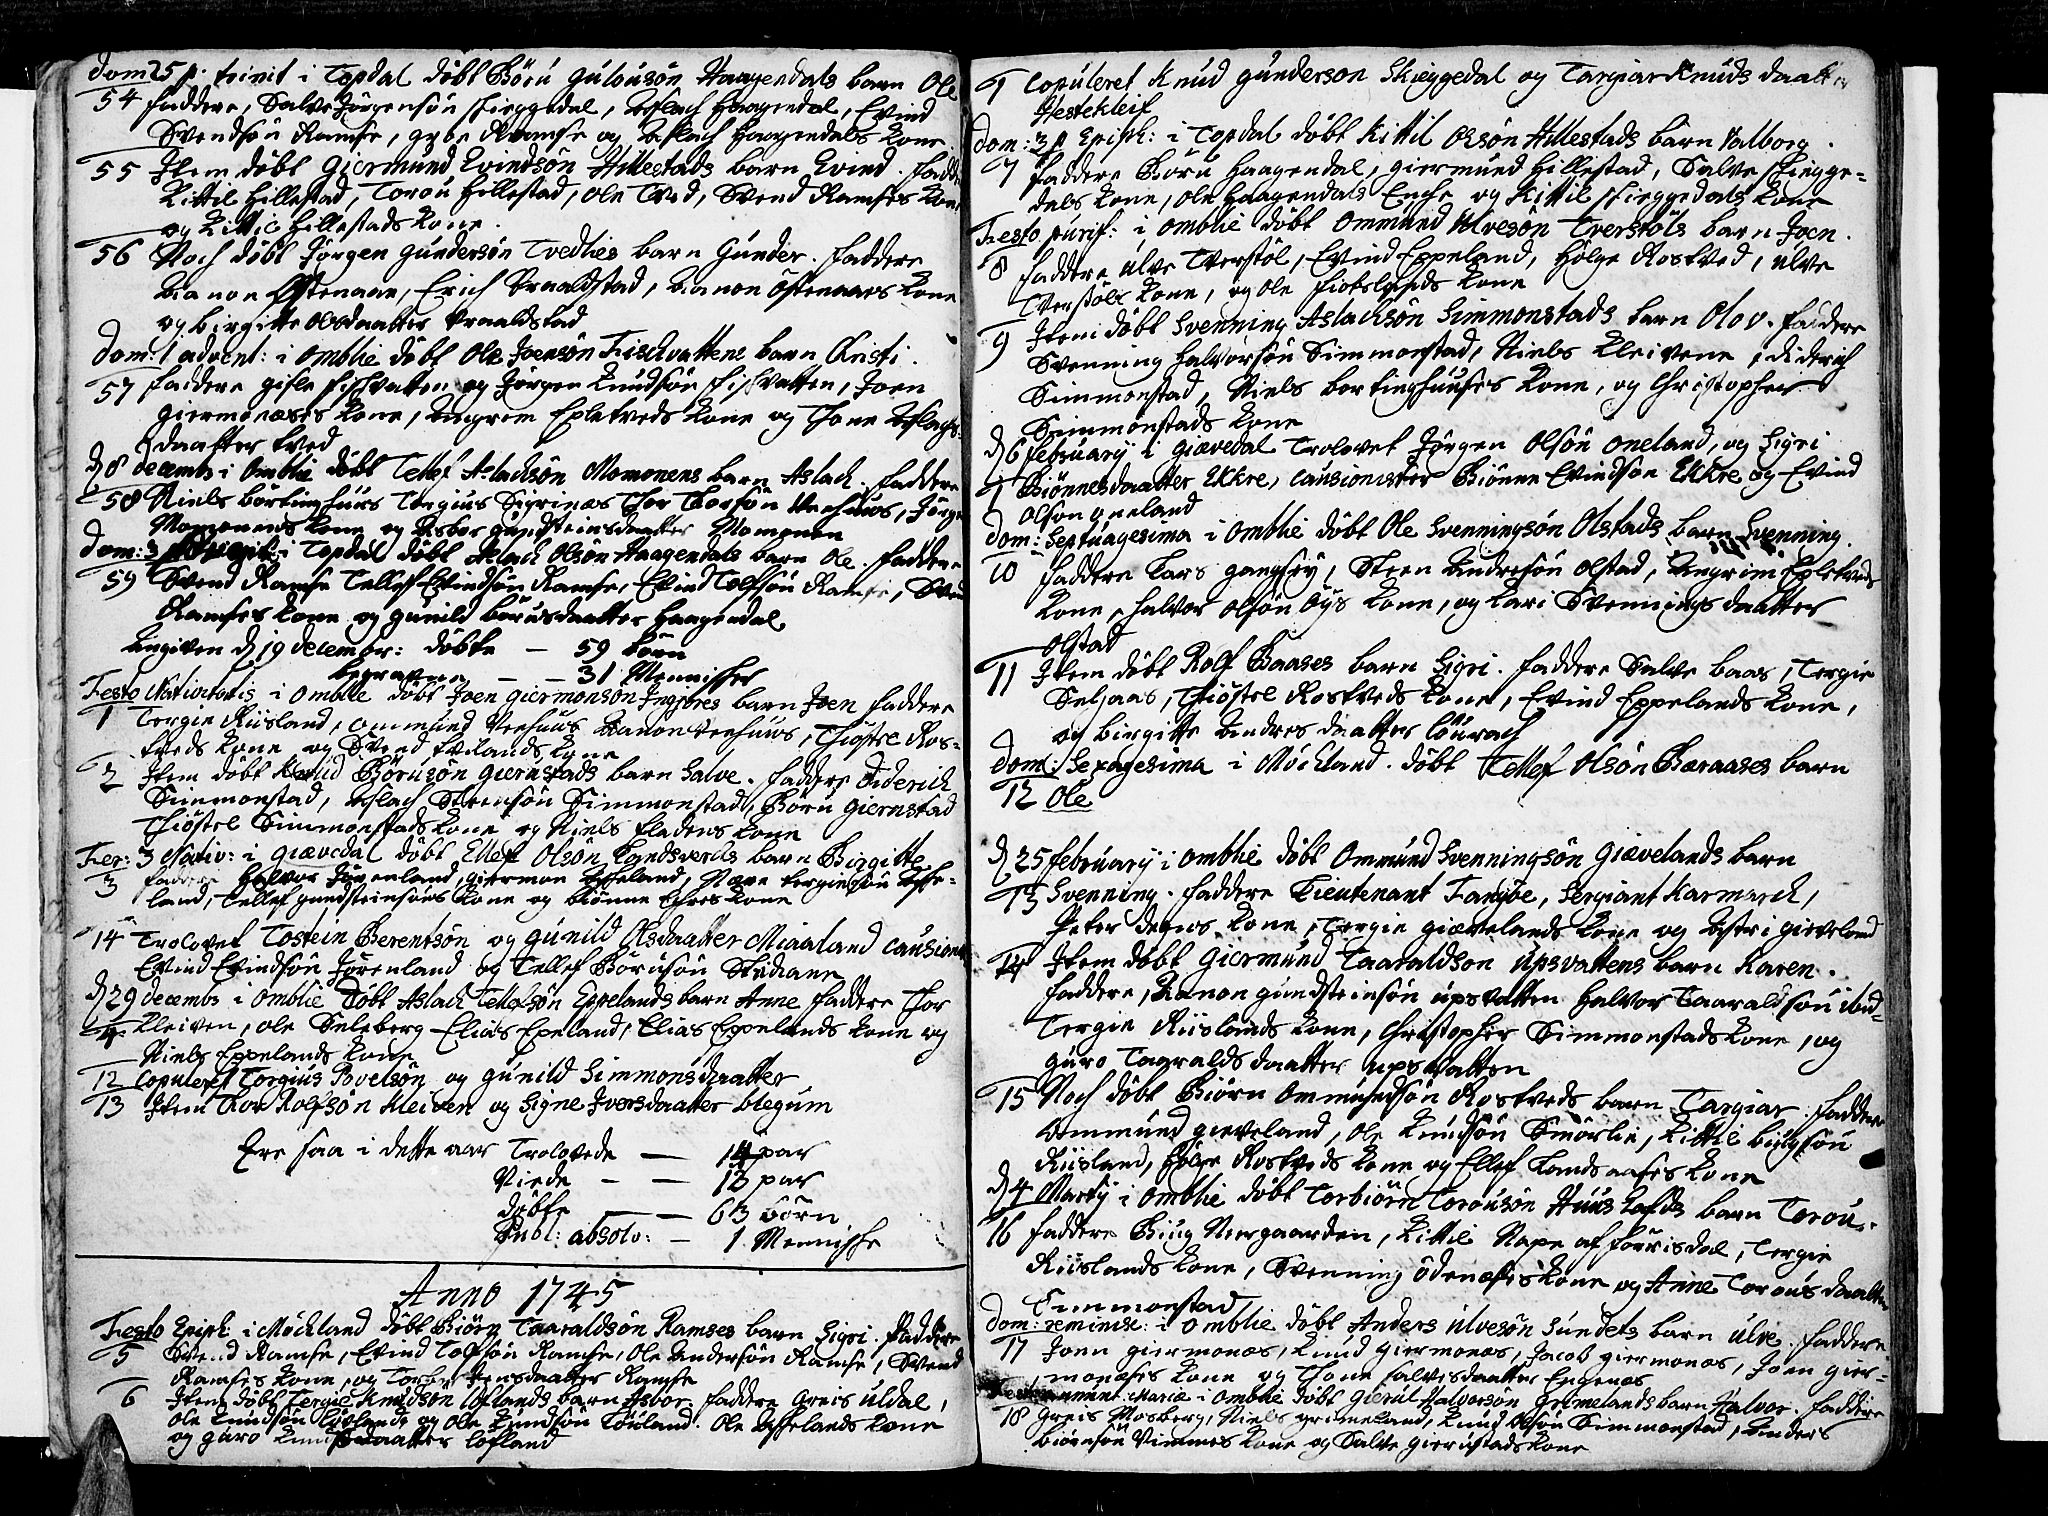 Dom 25 p. trinit i Topdal döbt Börú Gulousön Haagendals barn Ole
54 faddere, Salve Jörgensön Skieggedal, Aslach Haagendal, Evind
Svendsön Ramse, Gybe Ramse og Aslach Haagendals kone
55 Item döbt Giermund Evindsön Hillestads barn Evind. fadde
Kittil Hillestad, Toroú Hillestad, Ole Tved, Svend Ramses kone
og Kittil Hillestads kone.
56 Noch döbt Jörgen Gundersön Tvedlies barn Gunder. faddere
Aanon Östenaae, Erich Vraaldstad, Aanon Östenaaes kone
og Birgitte Olsdaatter Vraaldstad
Dom: 1 advent: i Omblie döbt Ole Joensön Fischvattens barn Kristi.
57 faddere Gisle Fischvatten og Jörgen Knudsön Fischvatten, Joen
Giermonæses kone, Angrim Epletveds kone og Thone Aslags-
daatter Tved
d 8 decembr i Omblie döbt Tellef Aslachsön Momonens barn Aslach. faddere
58 Niels Börtinghuus Torgius Sigrinæs Thor Thorsön Veehuus, Jörge
Momonens kone og Asbor Gundsteinsdaatter Momonen
Dom: 3 Advent: i Topdal döbt Aslach Olsön Haagendals barn Ole. faddere
59 Svend Ramse Tellef Evindsön Ramse, Evind Tolfsön Ramse, Svend
Ramses kone og Gunild Börúsdaatter Haagendal
Angiven d 19 decembr: döbte — 59 börn
begravne — — 31 Mennisker
Festo Nativitatis i Omblie döbt Joen Giermonsön Ingstres barn Joen faddere
1 Tergie Riisland, Ommund Veehuus Aanon Veehuus, Thiöstel Ros-
tveds kone og Svend Evelands kone
2 Item döbt Knud Börúsön Giernstads barn Salve. faddere Diderich
Simmonstad, Aslach Steensön Simmonstad, Börú Giernstad
Thiöstel Simmonstads kone og Niels Fladens kone
Fer: 3 Nativ: i Giævedal döbt Ellef Olsön Landsverks barn Birgitte
3 faddere Halvor Jörenland, Giermon Affeland, Næve Tergiesön Affe-
land, Tellef Gundsteinsöns kone og Biönne Ekres kone
14 Trolovet Tostein Berentsön og Gunild Olsdaatter Miaaland causionist
Evind Evindsön Jörenland og Tellef Börúsön Stediane
d 29 decembr i Omblie döbt Aslach Tellefsön Eppelands barn Anne faddere Thor
4 Kleiven, Ole Seleberg Elias Epeland, Elias Eppelands kone og
Niels Eppelands kone
12 Copuleret Torgius Povelsön og Gunild Simmonsdaatter
13 Item Thor Rolfsön Kleiven og Signe Iversdaatter Blegum
Ere saa i dette aar Trolovede — 14 par
Viede — — 13 par
Döbte — 63 börn
Publ: absolv: — 1 Menniske
Anno 1745
Festo Epiph: i Möckland döbt Biörn Taaraldsön Ramses barn Sigri. faddere
5 Svend Ramse, Evind Tolfsön Ramse, Ole Andersön Ramse, Svend
Ramses kone, og Torber daatter Ramse
6 Item döbt Tergie Knudsön Löflands barn Asbor. faddere Greis Uldal,
Ole Knudsön Löflands og Ole Knudsön Löuland. Ole Affelands kone
og Guro Knudsdaatter Löfland
1 Copuleret Knud Gunderson Skieggedal og Targiær Knudsdaatter
Hestekleif
Dom: 3 p Epiph: i Topdal döbt Kittil Olsön Hillestads barn Valborg.
7 faddere Börú Haagendal, Giermund Hillestad, Salve Skiegge-
dals kone, Ole Haagendals Enche og Kittil Skieggedals kone
Festo purif: i Omblie döbt Ommund Ulvesön Tverstöls barn Joen.
8 faddere Ulve Tverstöl, Evind Eppeland, Hölge Rostved, Ulve
Tverstöls kone, og Ole Fiobslunds kone
9 Item döbt Svenning Aslachsön Simmonstads barn Olov. faddere
Svenning Halvorsön Simmonstad, Niels Kleivene, Diderich
Simmonstad, Niels Börtinghuuses kone, og Christopher
Simmonstads kone
d 6 february i Giævedal Trolovet Jörgen Olsön Oneland, og Sigri
1 Biönnesdaatter Ekkre, causionister Biönne Evindsön Ekkre og Evind
Olsön Oneland
Dom: Septuagesima i Omblie döbt Ole Svenningsön Olstads barn Svenning.
10 faddere Lars Gangsøy, Steen Andresön Olstad, Angrim Epletveds
kone, Halvor Olsön Öys kone, og Kari Svenningsdaatter
Olstad
11 Item döbt Rolf Baases barn Sigri. faddere Salve Baas, Tergie
Selaas, Thiöstel Rostveds kone, Evind Eppelands kone,
og Birgitte Andresdaatter Löurach
Dom: Sexagesima i Möckland. döbt Tellef Olsön Baraases barn
12 Ole
d 25 february i Omblie döbt Ommund Svenningsön Giævelands barn
13 Svenning. faddere Lieutenant Fangöe, Sergiant Karmarch,
Peter Degns kone, Tergie Giævelands kone og Astri Gieveland
14 Item döbt Giermund Taaraldson Upsvattens barn Karen.
faddere, Aanon Gundsteinsön Upsvatten Halvor Taaraldsön ibid-
Tergie Riislands kone, Christopher Simmonstads kone, og
Guro Taaraldsdaatter Upsvatten
15 Noch döbt Biörn Ommundsön Rostveds barn Targiær. faddere
Ommund Gieveland, Ole Knudsön Smörlie, Kittil Biugsön
Riisland, Hölge Rostveds kone og Ellef Landsaases kone
d 4 Martij i Omblie döbt Torbiörn Torousön Huus Lofds barn Torou.
16 faddere Biug Nergaarden, Kittil Nape af Förrisdal, Tergie
Riislands kone, Svenning Ödenæses kone og Anne Torousdaatter
Simmonstad
Dom: reminisc: i Omblie döbt Anders Ulvesön Sundets barn Ulve. faddere
17 Joen Giermonæs, Knud Giermonæs, Jacob Giermonæs, Joen Gier-
monæses kone og Thone Salvesdaatter Engenæs
Festo annunt. Mariæ i Omblie döbt Gierul Halvorsön Grimelands barn Halvor. faddere
18 Greis Mosberg, Niels Grimeland, Knud Olsön Simmonstad, Anders
Biörnsön Vimmes kone og Salve Gierustads kone